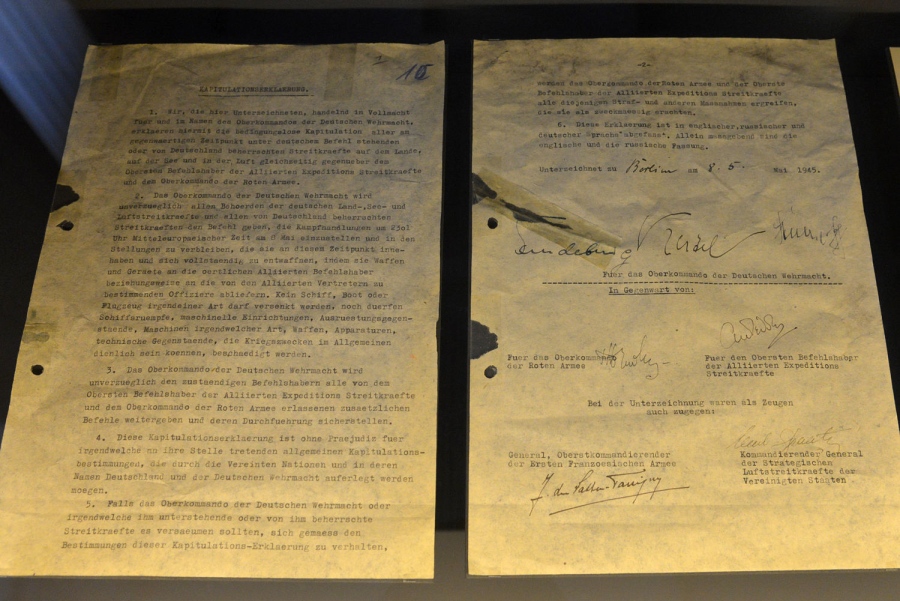 1
10
KAPITULATIONSERKLAERUNG.
1. Wir, die hier Unterzeichneten, handelnd in Vollmacht
fuer und im Namen des Oberkommandos der Deutschen Wehrmacht,
erklaeren hiermit die bedingungslose Kapitulation aller am
gegenwaertigen Zeitpunkt unter deutschem Befehl stehenden
oder von Deutschland beherrschten Streitkraefte auf dem Lande,
auf der See und in der Luft gleichzeitig gegenueber dem
Obersten Befehlshaber der Alliierten Expeditions Streitkraefte
und dem Oberkommando der Roten Armee.
2. Das Oberkommando der Deutschen Wehrmacht wird
unverzueglich allen Behoerden der deutschen Land-, See- und
Luftstreitkraefte und allen von Deutschland beherrschten
Streitkraeften den Befehl geben, die Kampfhandlungen um 2301
Uhr Mitteleuropaeischer Zeit am 8 Mai einzustellen und in den
Stellungen zu verbleiben, die sie an diesem Zeitpunkt inne-
haben und sich vollstaendig zu entwaffnen, indem sie Waffen
und Geraete an die oertlichen Alliierten Befehlshaber
beziehungsweise an die von den Alliierten Vertretern zu
bestimmenden Offiziere abliefern. Kein Schiff, Boot oder
Flugzeug irgendeiner Art darf versenkt werden, noch duerfen
Schiffsruempfe, maschinelle Einrichtungen, Ausruestungsgegen-
staende, Maschinen irgendwelcher Art, Waffen, Apparaturen,
technische Gegenstaende, die Kriegszwecken im Allgemeinen
dienlich sein koennen, beschaedigt werden.
3. Das Oberkommando der Deutschen Wehrmacht wird
unverzueglich den zustaendigen Befehlshabern alle von dem
Obersten Befehlshaber der Alliierten Expeditions Streitkraefte
und dem Oberkommando der Roten Armee erlassenen zusaetzlichen
Befehle weitergeben und deren Durchfuehrung sicherstellen.
4. Diese Kapitulationserklaerung ist ohne Praejudiz fuer
irgendwelche an ihre Stelle tretenden allgemeinen Kapitulations-
bestimmungen, die durch die Vereinten Nationen und in deren
Namen Deutschland und der Deutschen Wehrmacht auferlegt werden
moegen.
5. Falls das Oberkommando der Deutschen Wehrmacht oder
irgendwelche ihm unterstehende oder von ihm beherrschte
Streitkraefte es versaeumen sollten, sich gemaess den
Bestimmungen dieser Kapitulations-Erklaerung zu verhalten,
-2-
werden das Oberkommando der Roten Armee und der Oberste
Befehlshaber der Alliierten Expeditions Streitkraefte
alle diejenigen Straf- und anderen Massnahmen ergreifen,
die sie als zweckmaessig erachten.
6. Diese Erklaerung ist in englischer, russischer und
deutscher Sprache abgefasst. Allein massgebend sind die
englische und die russische Fassung.
Unterzeichnet zu Berlin am 8. 5. Mai 1945.
Keitel
Fuer das Oberkommando der Deutschen Wehrmacht.
In Gegenwart von:
Fuer das Oberkommando
der Roten Armee
Fuer den Obersten Befehlshaber
der Alliierten Expeditions
Streitkraefte
Bei der Unterzeichnung waren als Zeugen
auch zugegen:
General, Oberstkommandierender
der Ersten Franzoesischen Armee
Kommandierender General
der Strategischen
Luftstreitkraefte der
Vereinigten Staaten